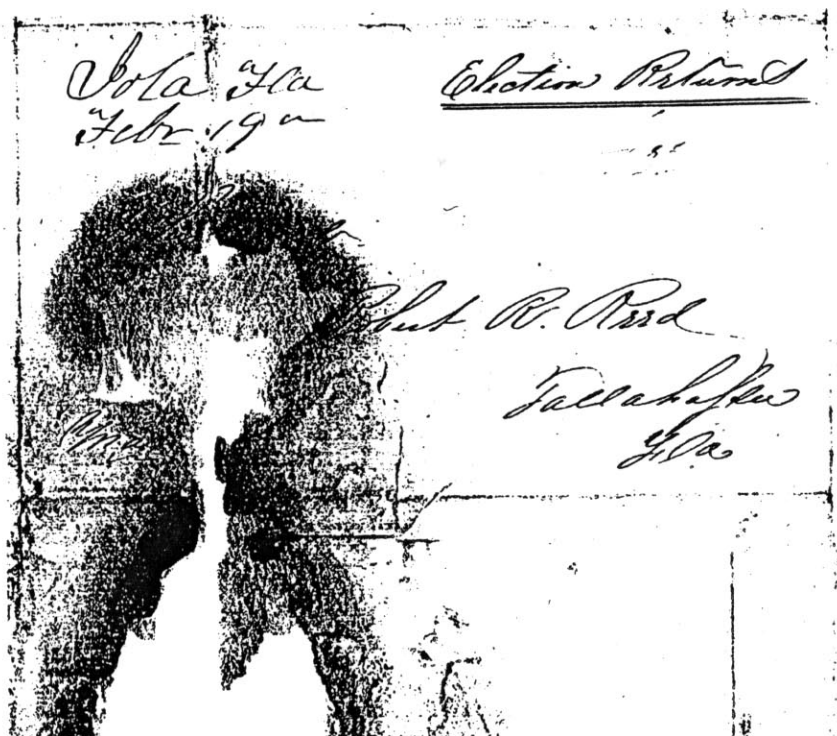 Iola Fla
Febr. 19th
Election Returns
Robert R. Reed
Tallahassee
Fla